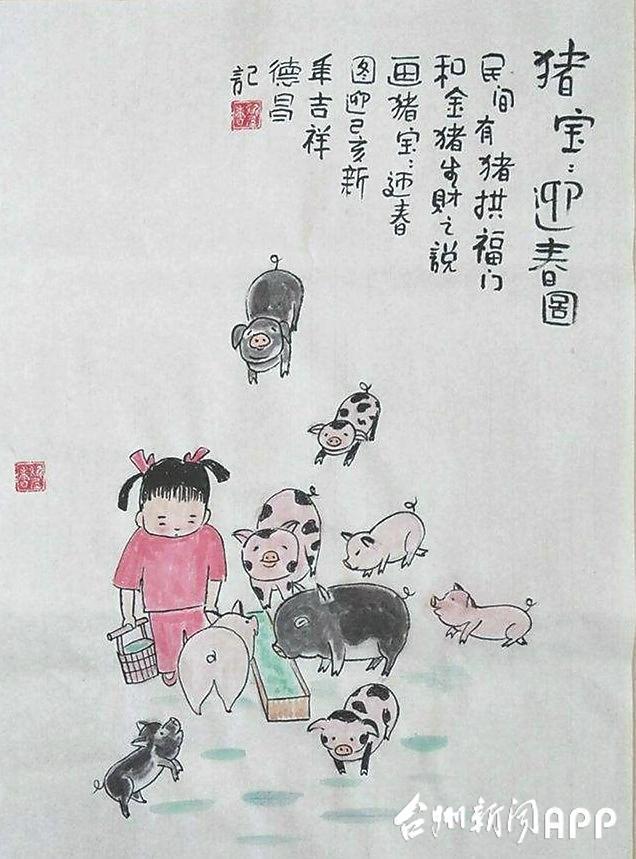 猪宝：迎春圖
民间有猪拱福门
和金猪生財之説
画猪宝：迎春
图迎己亥新
年吉祥
德昌
記
台州新闻APP